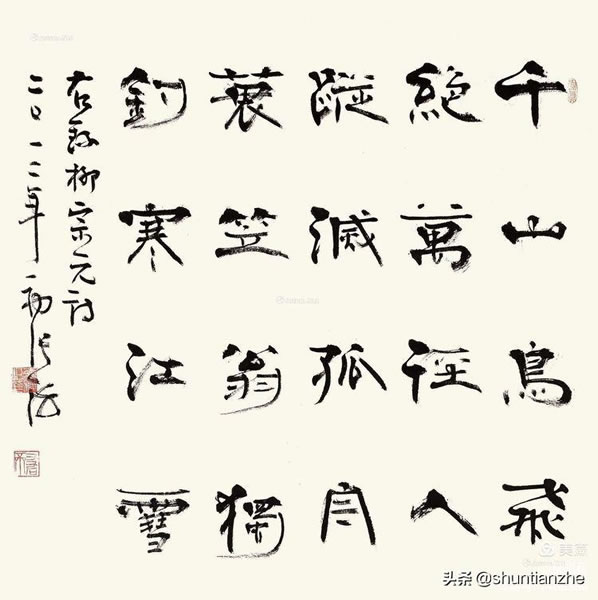 千山鳥飛
絶萬徑人
蹤滅孤舟
蓑笠翁獨
釣寒江雪
右録柳宗元詩
二〇一二年初張海
头条 @shuntianzhe